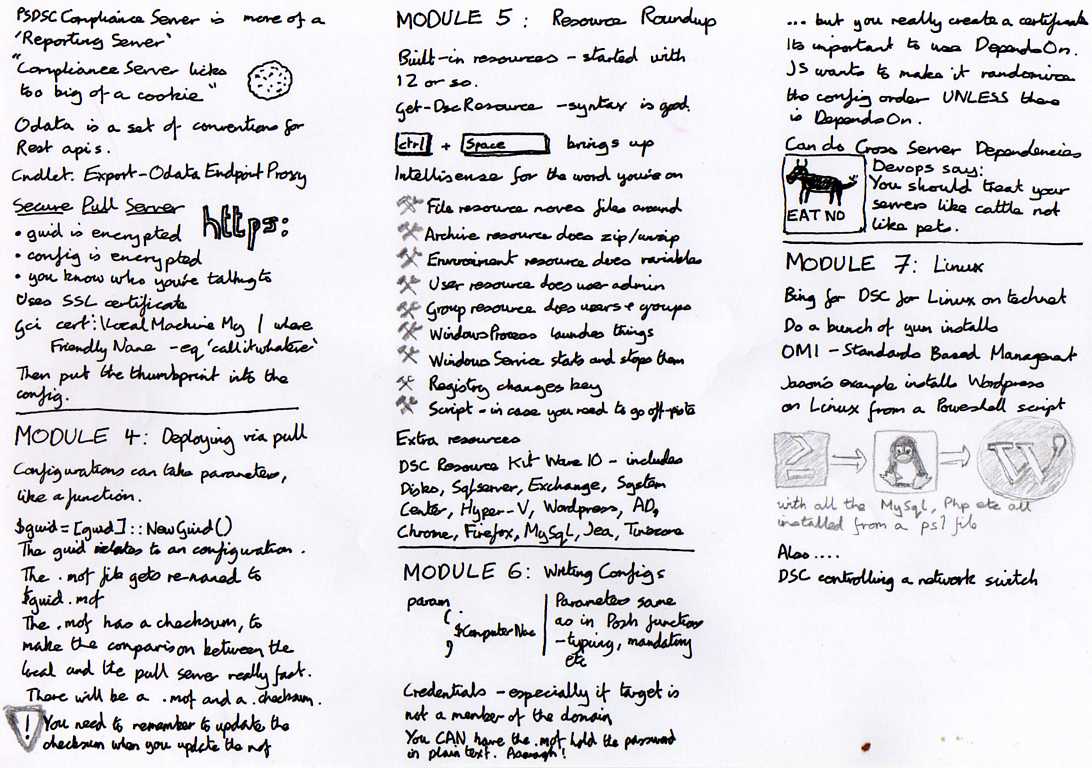 PSDSC Compliance Server is more of a
'Reporting Server'
"Compliance Server licks
too big of a cookie"
Odata is a set of conventions for
Rest apis.
Cmdlet: Export-Odata Endpoint Proxy
Secure Pull Server
https:
• guid is encrypted
• config is encrypted
• you know who you're talking to
Uses SSL certificate
gci cert:\Local Machine My | where
Friendly Name -eq 'callitwhatever'
Then put the thumbprint into the
config.
MODULE 4: Deploying via pull
Configurations can take parameters,
like a function.
$guid = [guid]::NewGuid()
The guid relates to an configuration.
The .mof file gets re-named to
$guid.mof
The .mof has a checksum, to
make the comparison between the
local and the pull server really fast.
There will be a .mof and a .checksum.
! You need to remember to update the
checksum when you update the mof
MODULE 5: Resource Roundup
Built-in resources - started with
12 or so.
Get-DscResource -syntax is good.
ctrl + Space brings up
Intellisense for the word you're on
File resource moves files around
Archive resource does zip/unzip
Environment resource does variables
User resource does user admin
Group resource does users + groups
Windows Process launches things
Windows Service starts and stops them
Registry changes key
Script - in case you need to go off-piste
Extra resources
DSC Resource Kit Wave 10 - includes
Disks, Sqlserver, Exchange, System
Center, Hyper-V, Wordpress, AD,
Chrome, Firefox, MySqL, Jea, Timezone
MODULE 6: Writing Configs
param
(
$ComputerName
)
Parameters same
as in Posh functions
- typing, mandating
etc
Credentials - especially if target is
not a member of the domain
You CAN have the .mof hold the password
in plain text. Aaaargh!
... but you really create a certificate
Its important to use DependsOn.
JS wants to make it randomize
the config order UNLESS there
is DependsOn.
Can do Cross Server Dependencies
EAT NO
Devops say:
You should treat your
servers like cattle not
like pets.
MODULE 7: Linux
Bing for DSC for Linux on technet
Do a bunch of yum installs
OMI - Standards Based Management
Jason's example installs Wordpress
on Linux from a Powershell script
W
with all the MySql, Php etc all
installed from a ps1 file
Also....
DSC controlling a network switch